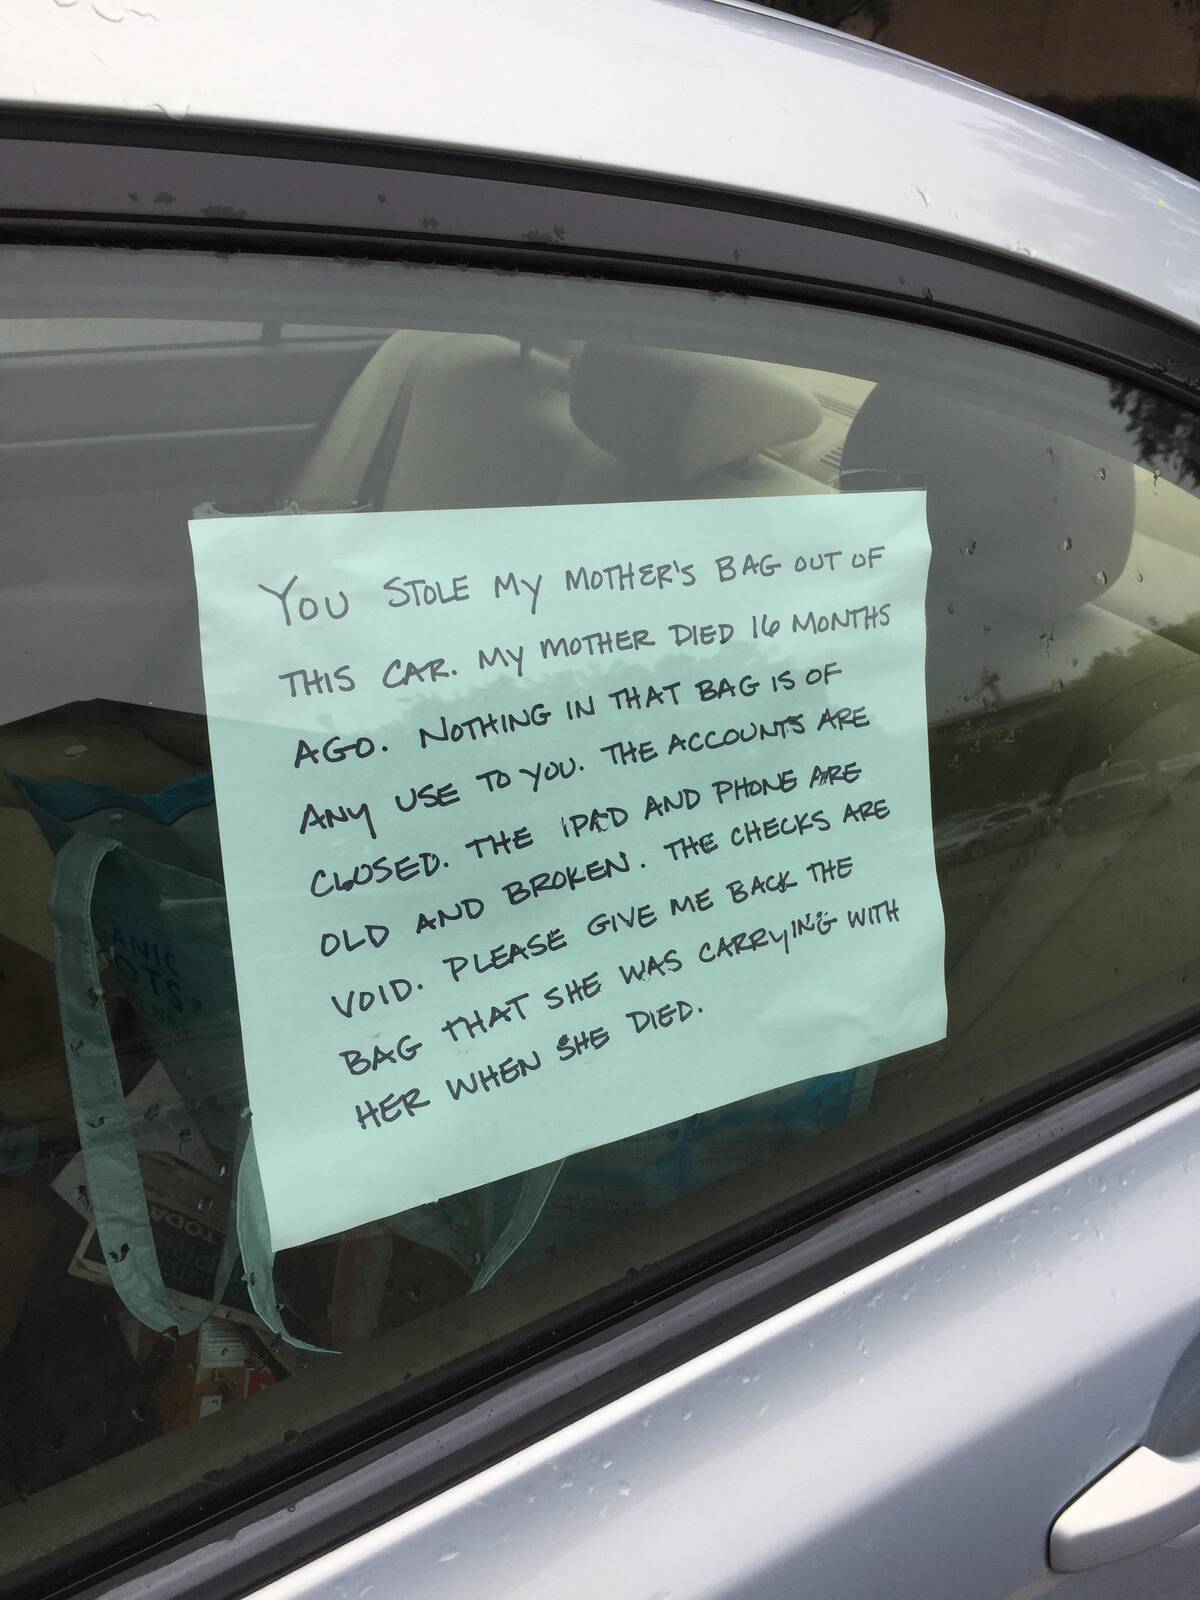 YOU STOLE MY MOTHER'S BAG OUT OF
THIS CAR. MY MOTHER DIED 16 MONTHS
AGO. NOTHING IN THAT BAG IS OF
ANY USE TO YOU. THE ACCOUNTS ARE
CLOSED. THE IPAD AND PHONE ARE
OLD AND BROKEN. THE CHECKS ARE
VOID. PLEASE GIVE ME BACK THE
BAG THAT SHE WAS CARRYING WITH
HER WHEN SHE DIED.
ANIC
OTS
TODA